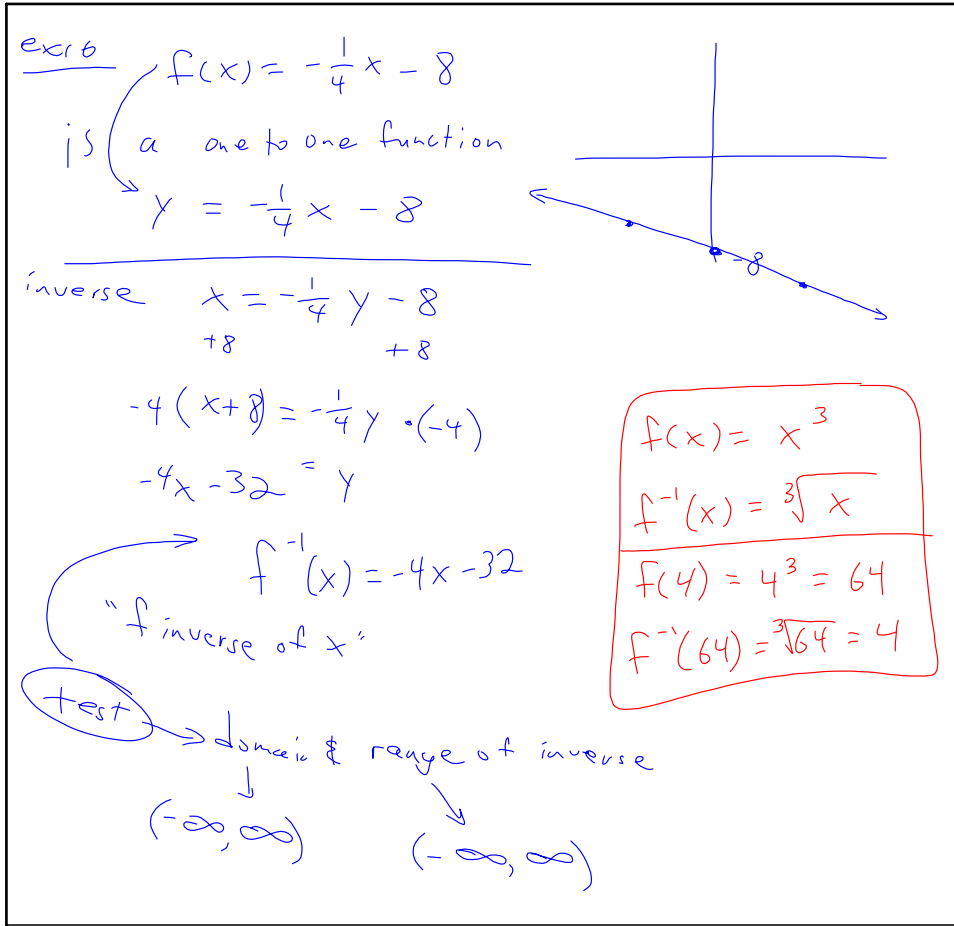 ex 6
f(x) = -1/4 x - 8
is a one to one function
y = -1/4 x - 8
-8
inverse x = -1/4 y - 8
+8 +8
-4(x+8) = -1/4 y · (-4)
-4x - 32 = y
f⁻¹(x) = -4x - 32
"f inverse of x"
test
domain & range of inverse
(-∞, ∞) (-∞, ∞)
f(x) = x³
f⁻¹(x) = ∛x
f(4) = 4³ = 64
f⁻¹(64) = ∛64 = 4